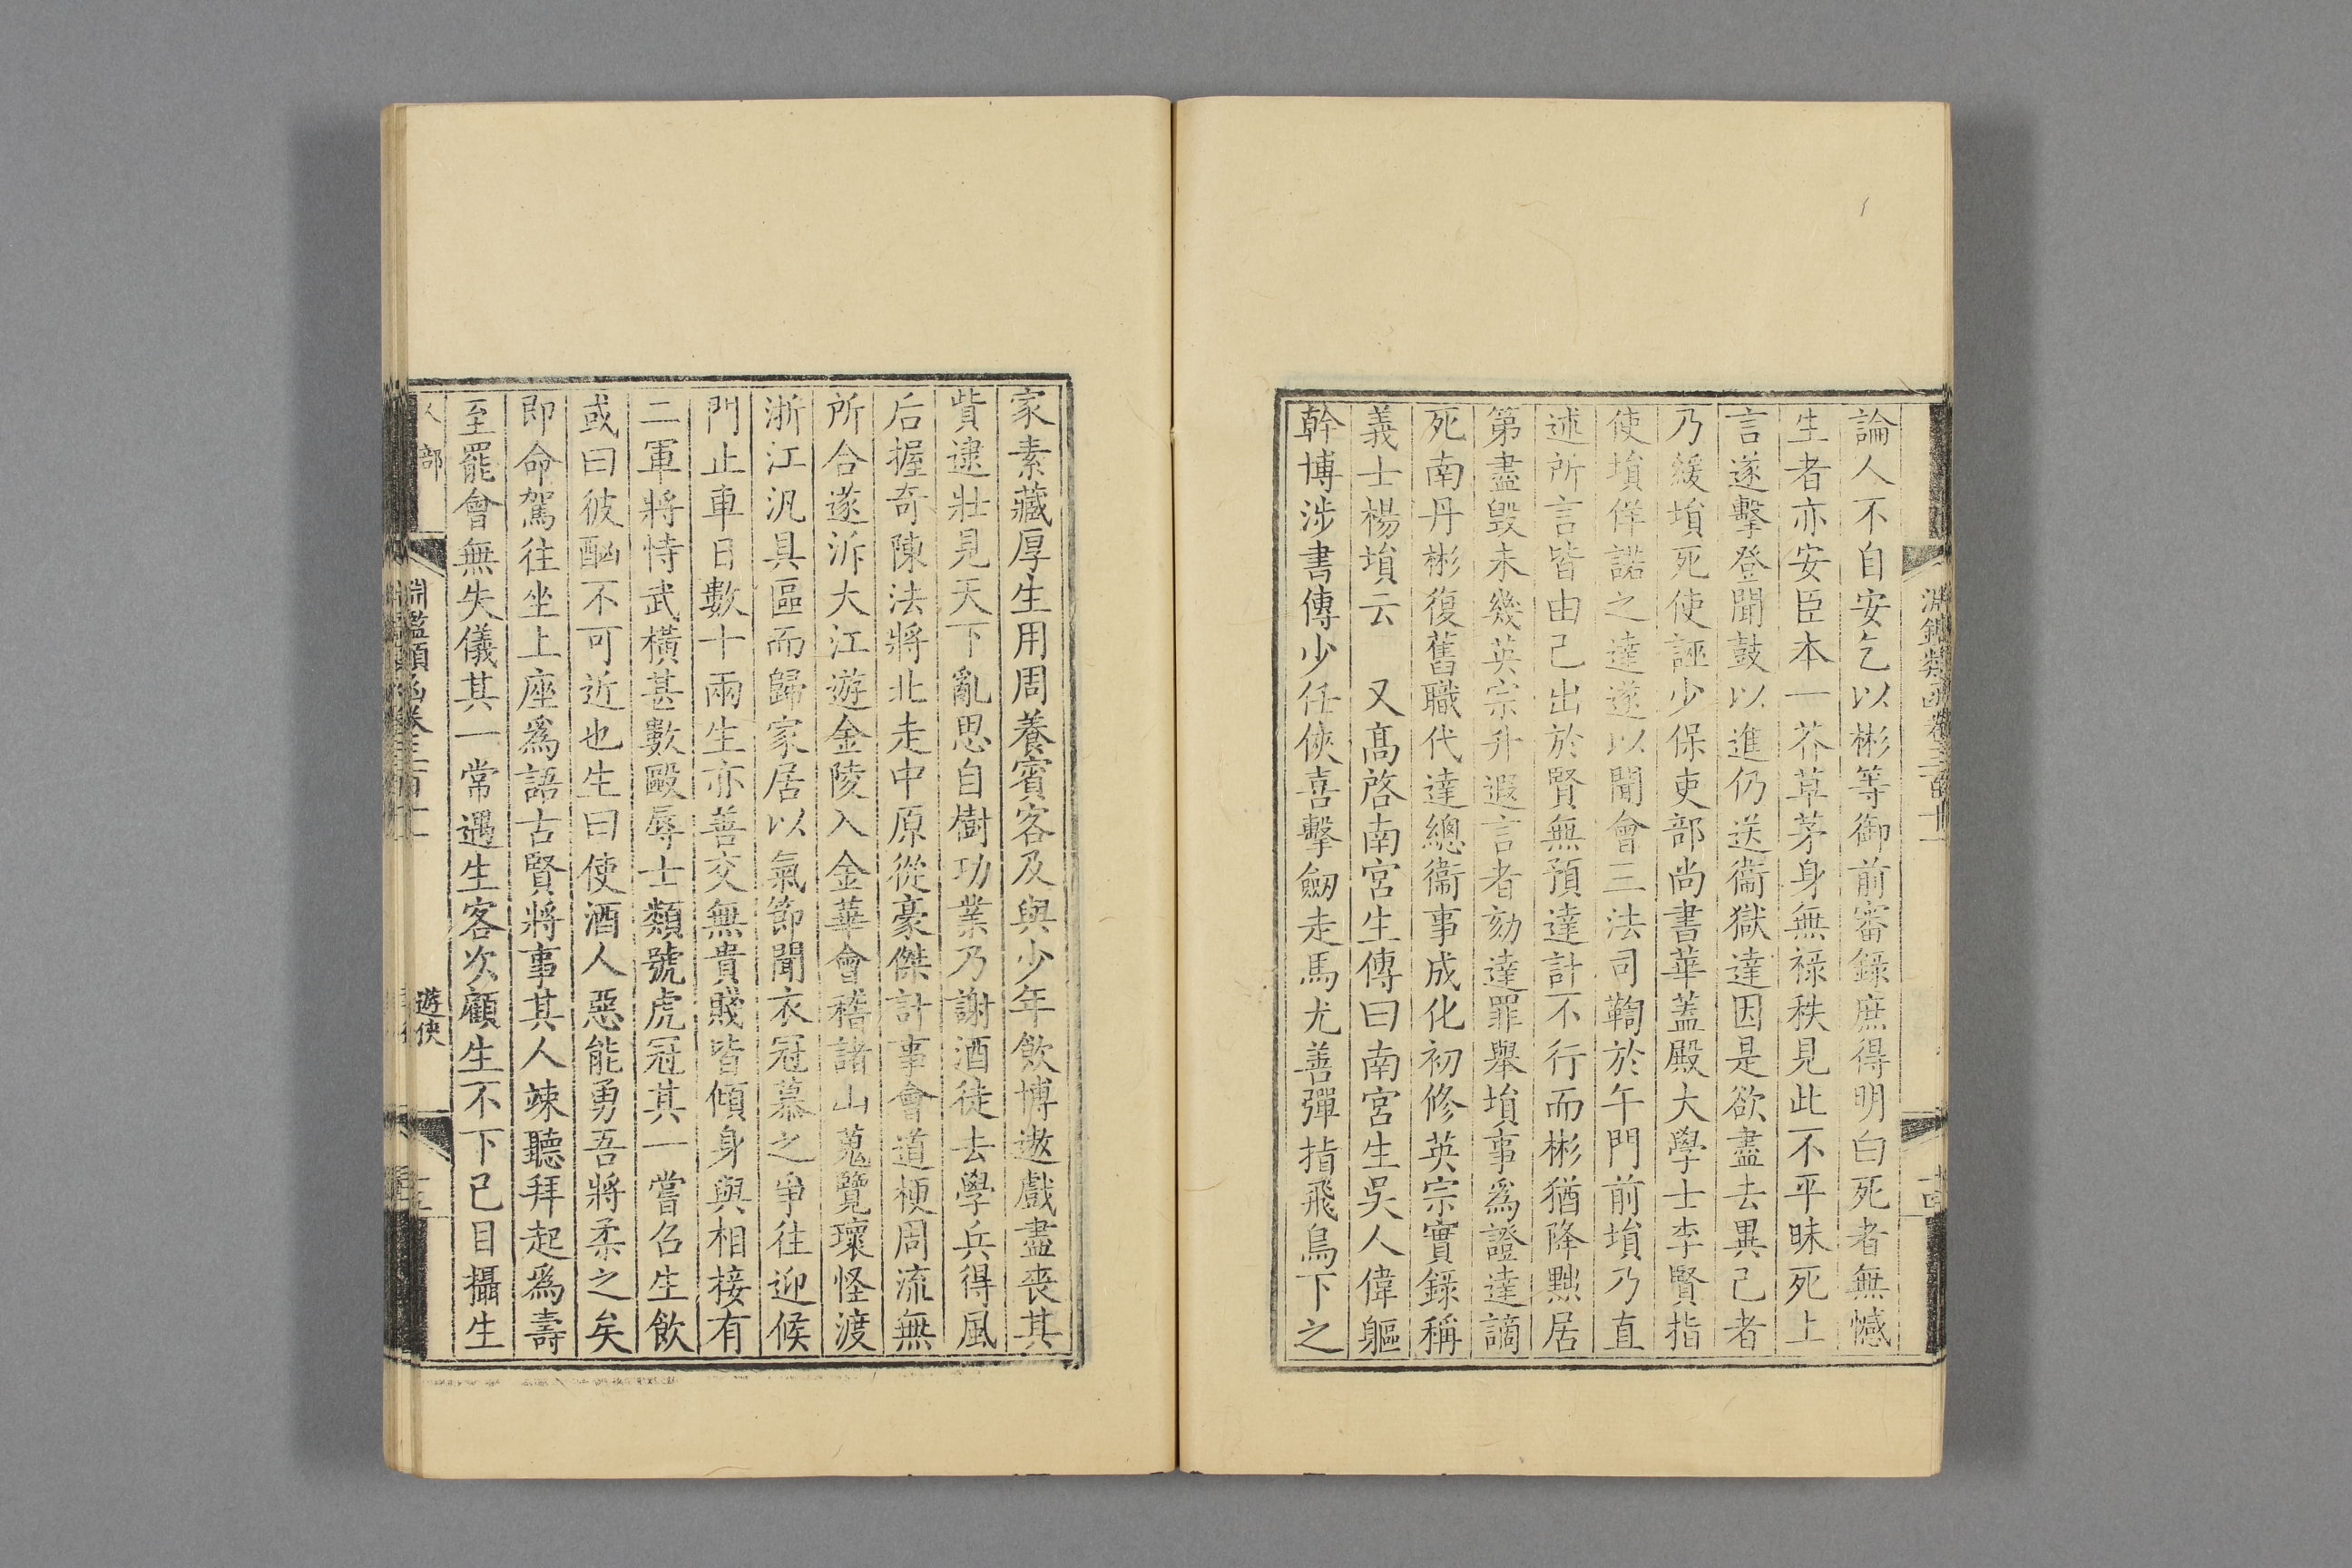 論人不自安乞以彬等御前審録庶得明白死者無憾
生者亦安臣本一芥草茅身無祿秩見此不平昧死上
言遂擊登聞鼓以進仍送衞獄達因是欲盡去異己者
乃緩塤死使誣少保吏部尚書華蓋殿大學士李賢指
使塤佯諾之達遂以聞會三法司鞫於午門前塤乃直
述所言皆由己出於賢無預達計不行而彬猶降黜居
第盡毀未幾英宗升遐言者劾達罪舉塤事爲證達謫
死南丹彬復舊職代達總衞事成化初修英宗實録稱
義士楊塤云　又髙啓南宮生傳曰南宮生吳人偉軀
幹博涉書傳少任俠喜擊劒走馬尤善彈指飛鳥下之
家素藏厚生用周養賓客及與少年飲博遨戲盡喪其
貲逮壯見天下亂思自樹功業乃謝酒徒去學兵得風
后握奇陳法將北走中原從豪傑計事會道梗周流無
所合遂泝大江遊金陵入金華會稽諸山蒐覽瓌怪渡
浙江汎具區而歸家居以氣節聞衣冠慕之爭往迎候
門止車日數十兩生亦善交無貴賤皆傾身與相接有
二軍將恃武橫甚數毆辱士類號虎冠其一嘗召生飲
或曰彼酗不可近也生曰使酒人惡能勇吾將柔之矣
即命駕往坐上座爲語古賢將事其人竦聽拜起爲壽
至罷會無失儀其一常遇生客次顧生不下己目攝生
人部
淵鑑類函卷三百十一
遊俠